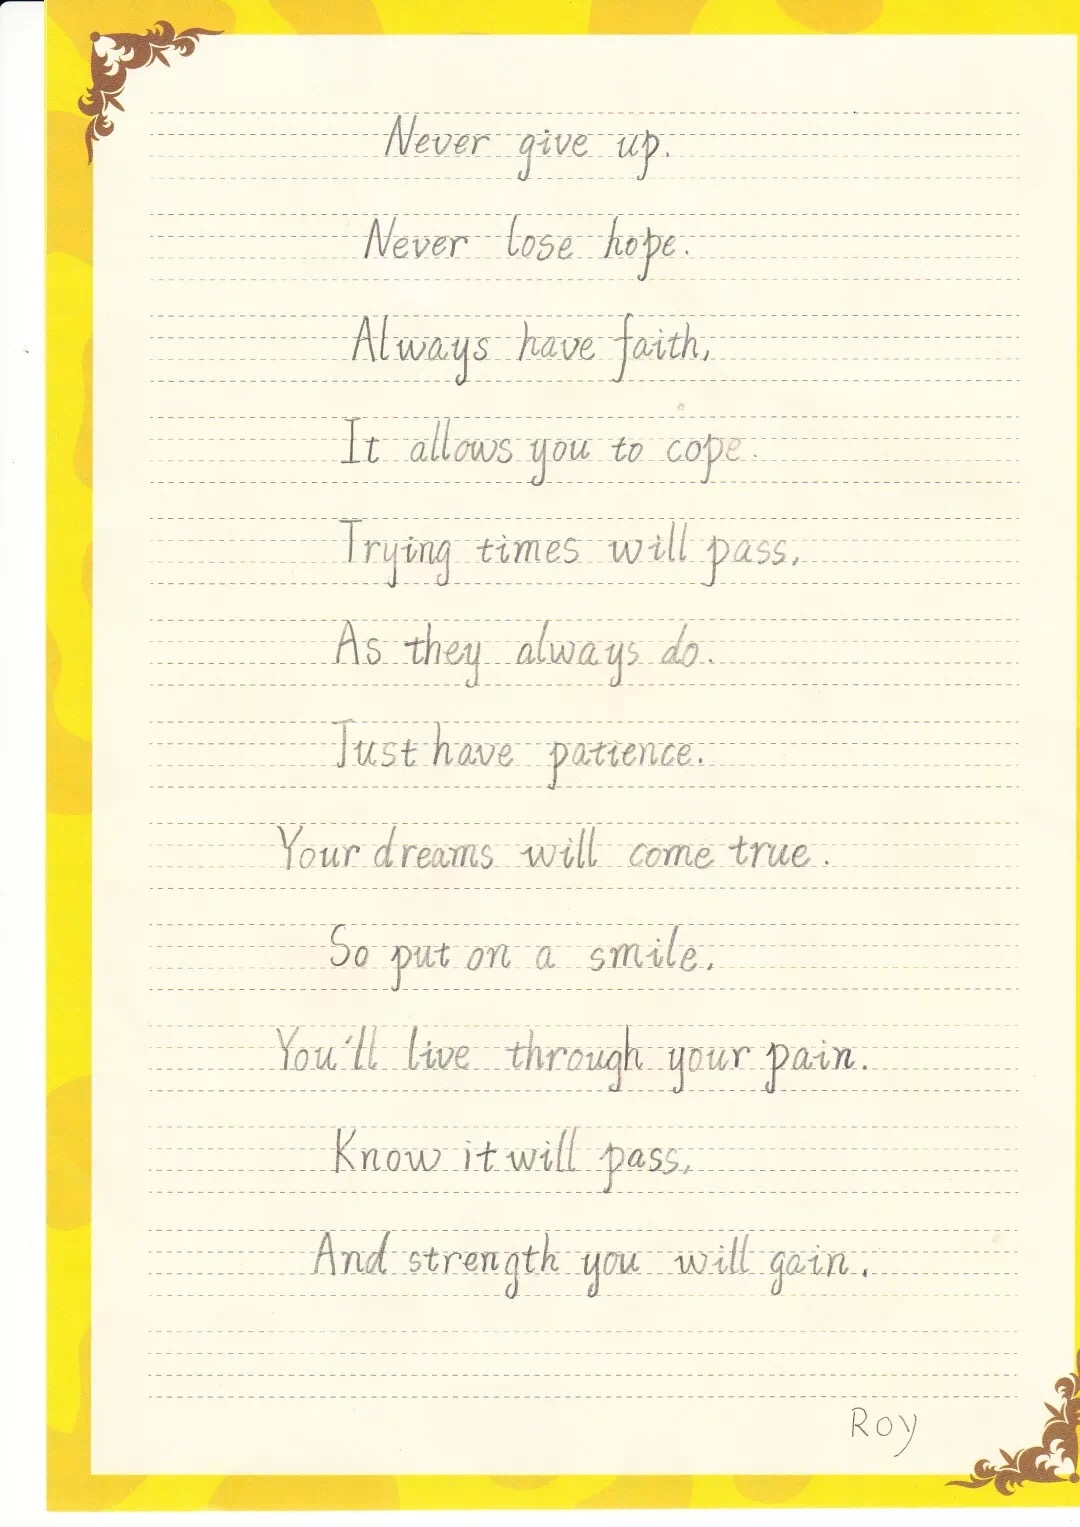 Never give up.
Never lose hope.
Always have faith,
It allows you to cope.
Trying times will pass,
As they always do.
Just have patience.
Your dreams will come true.
So put on a smile.
You'll live through your pain.
Know it will pass,
And strength you will gain.
Roy